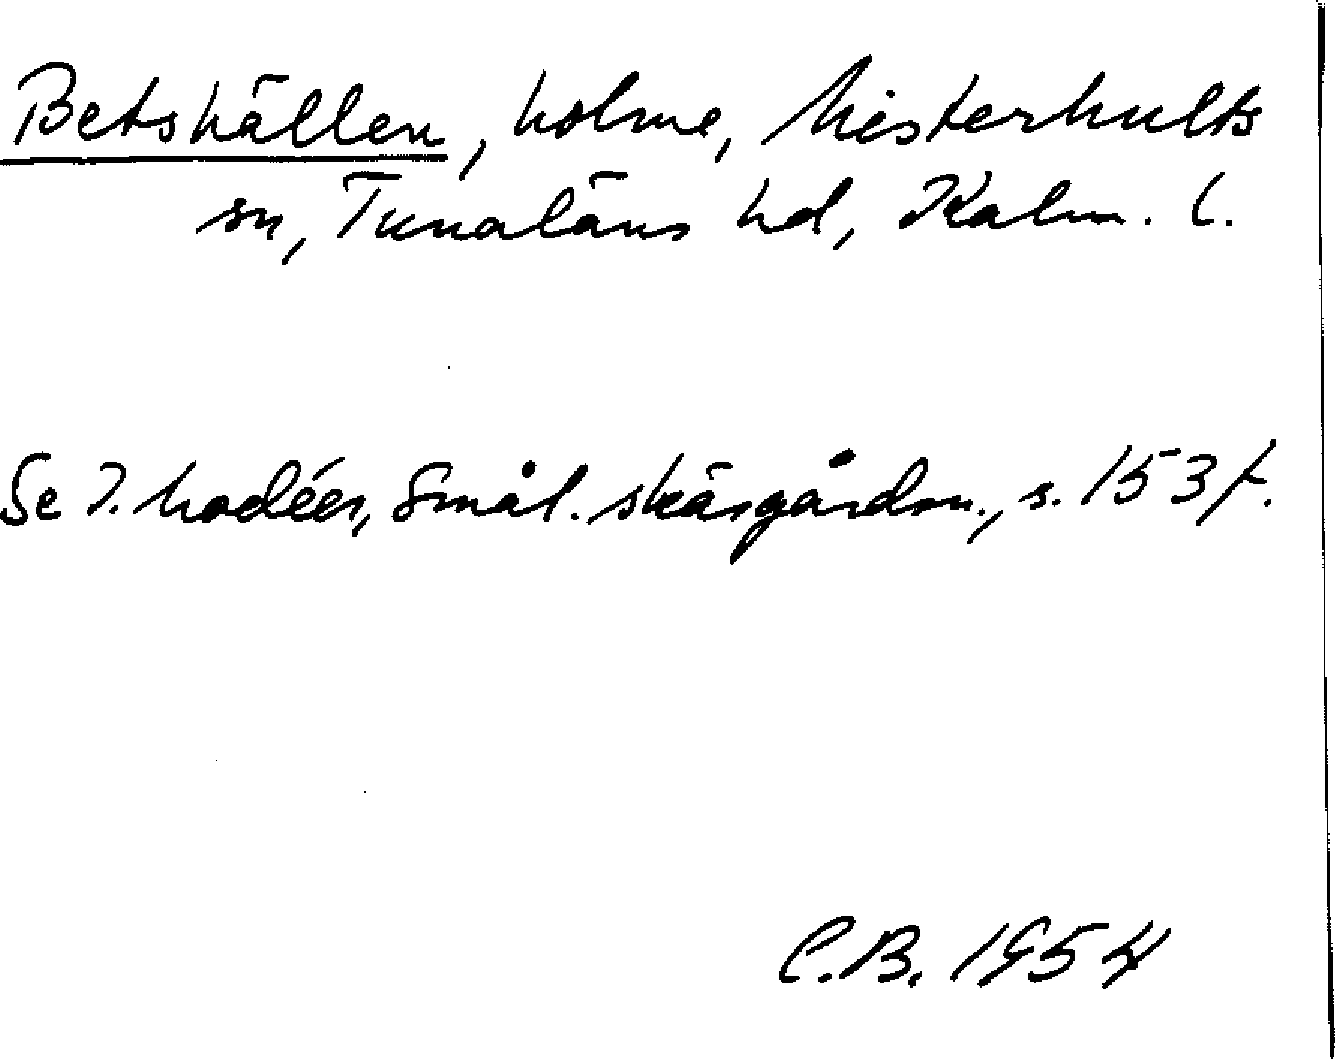 Betshällen, holme, Misterhults
sn, Tunaläns hd, Kalm. l.
Se I. Modéer, Smål. skärgårdsn., s. 153 f.
C.B. 1954